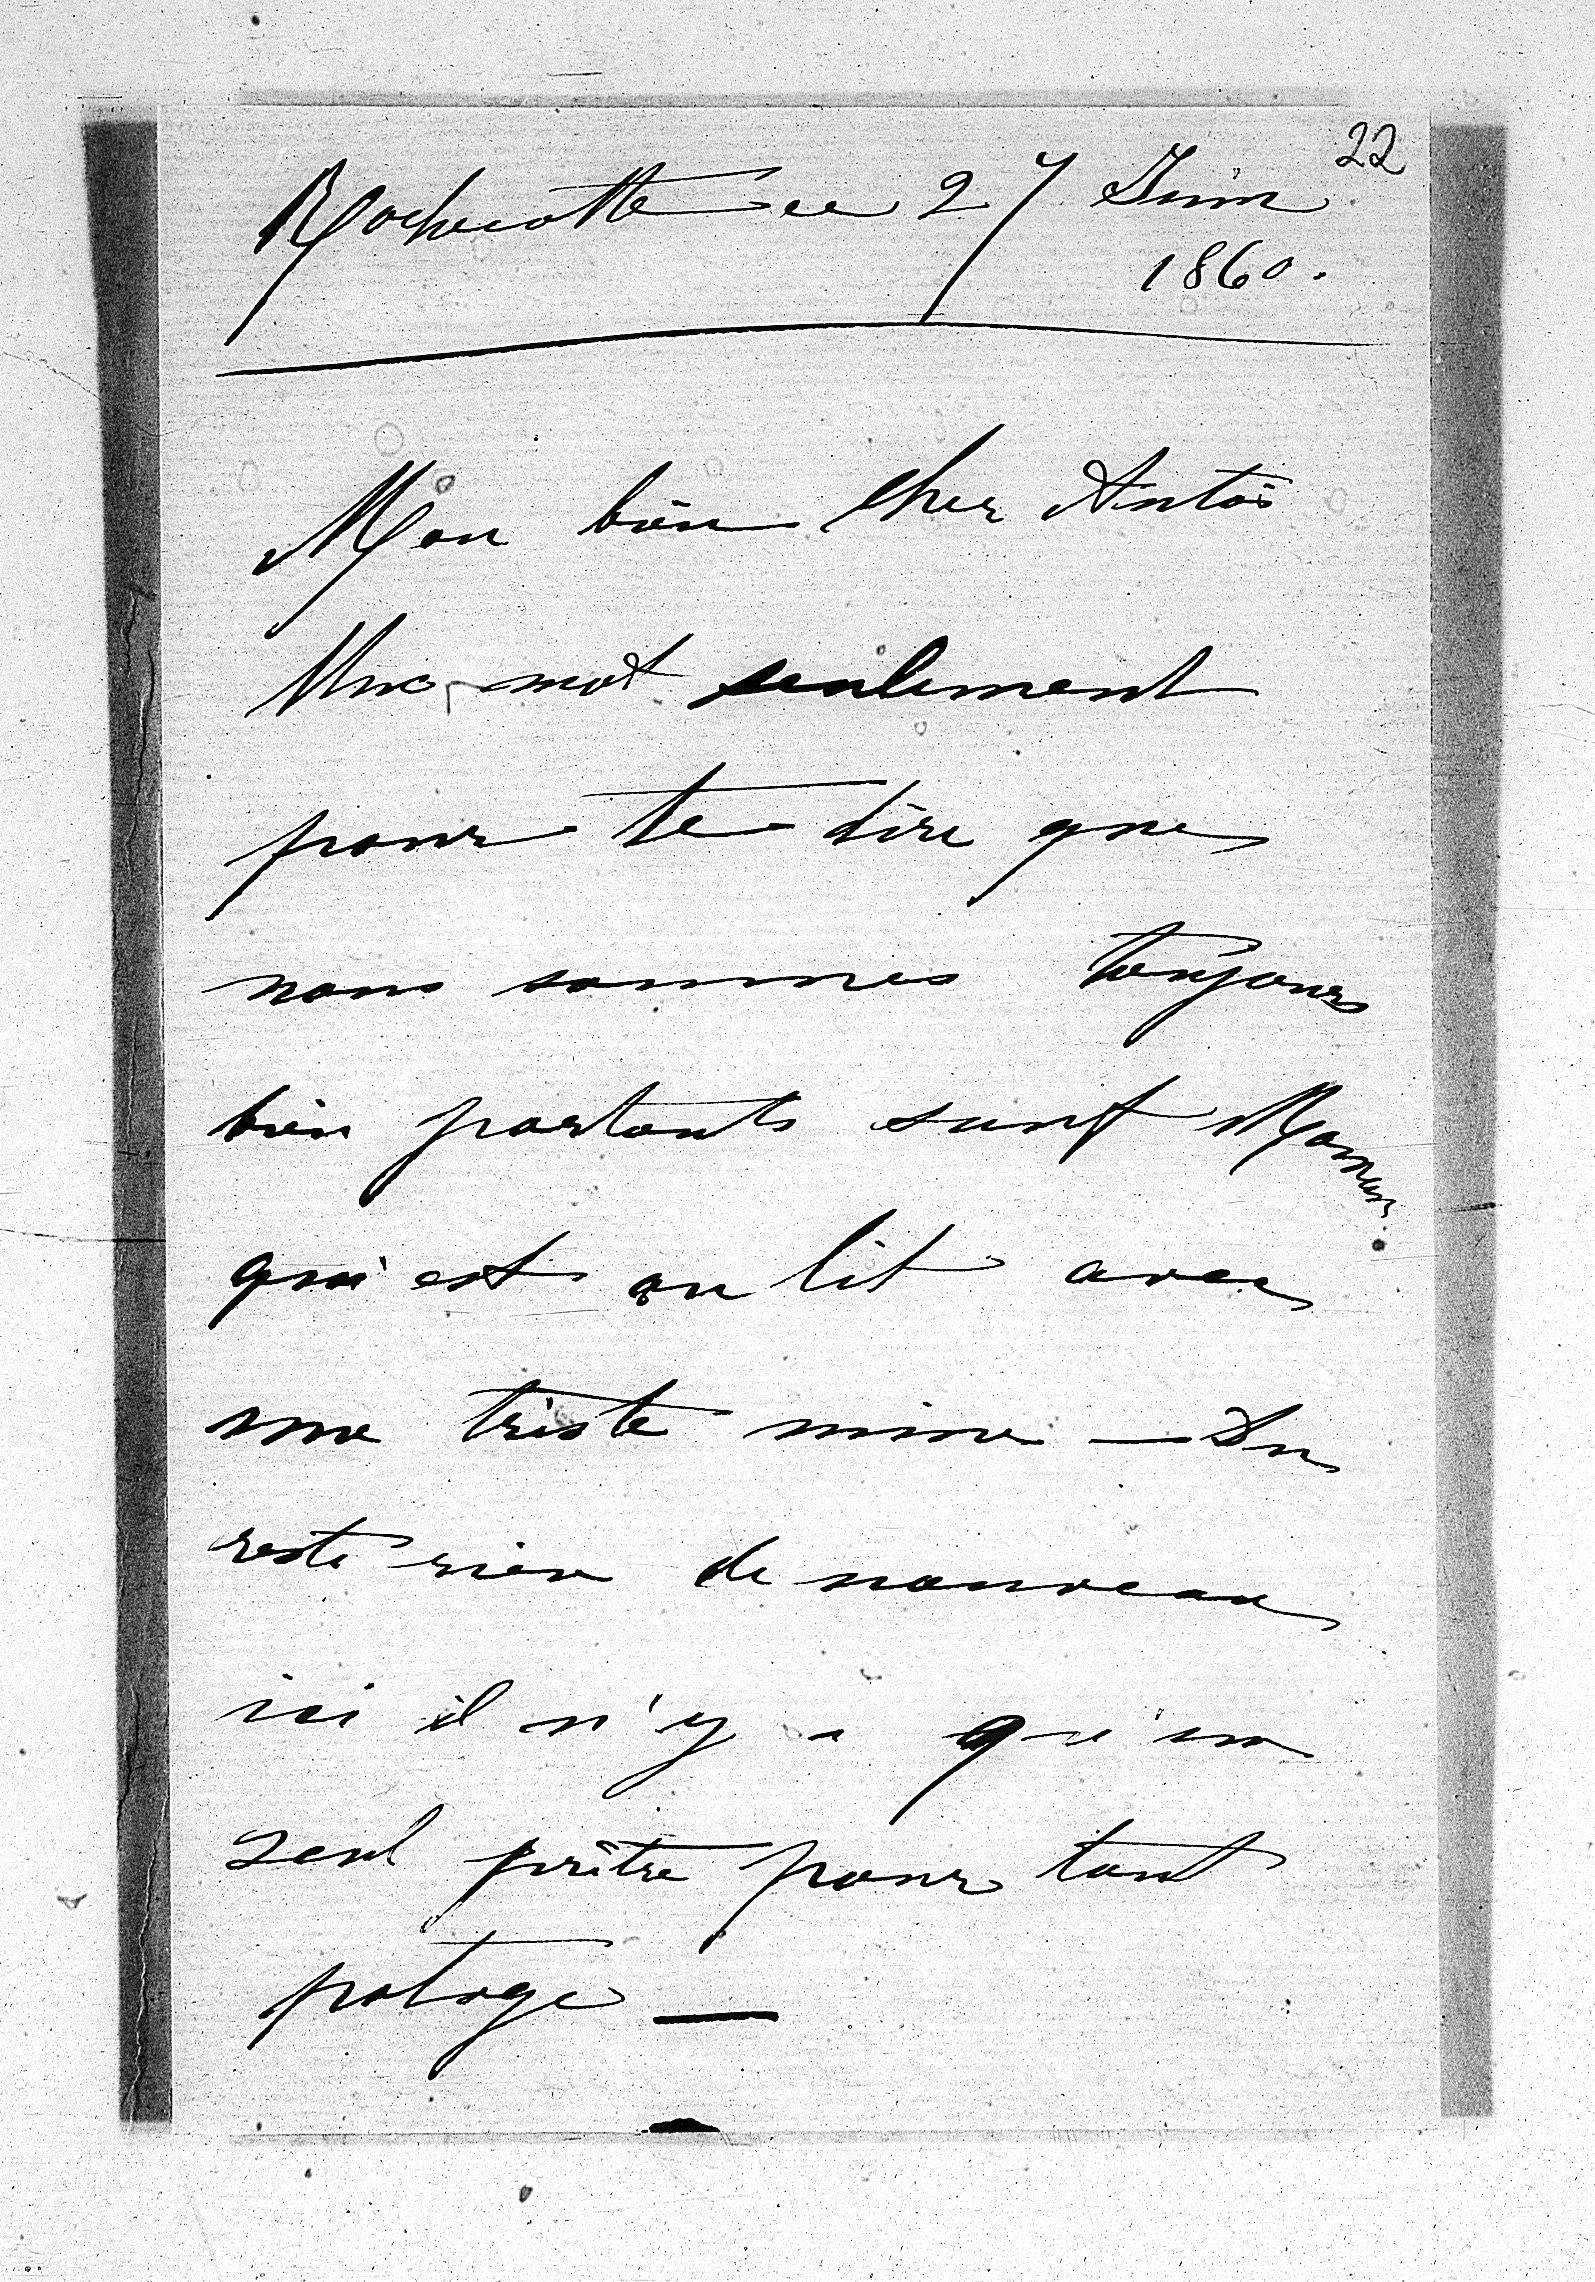 22
Rochecotte ce 27 Juin
1860.
Mon bien cher Antoi
Un mot seulement
pour te dire que
nous sommes toujours
bien portants sauf Maman
qui est au lit avec
une triste mine — Du
reste rien de nouveau
ici il n'y a qu'un
seul prêtre pour tout
potage —